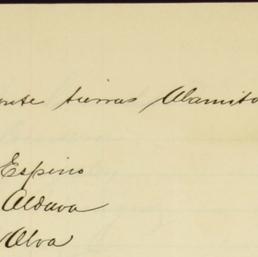 tierras Alamito
Espino
Aldava
Alva